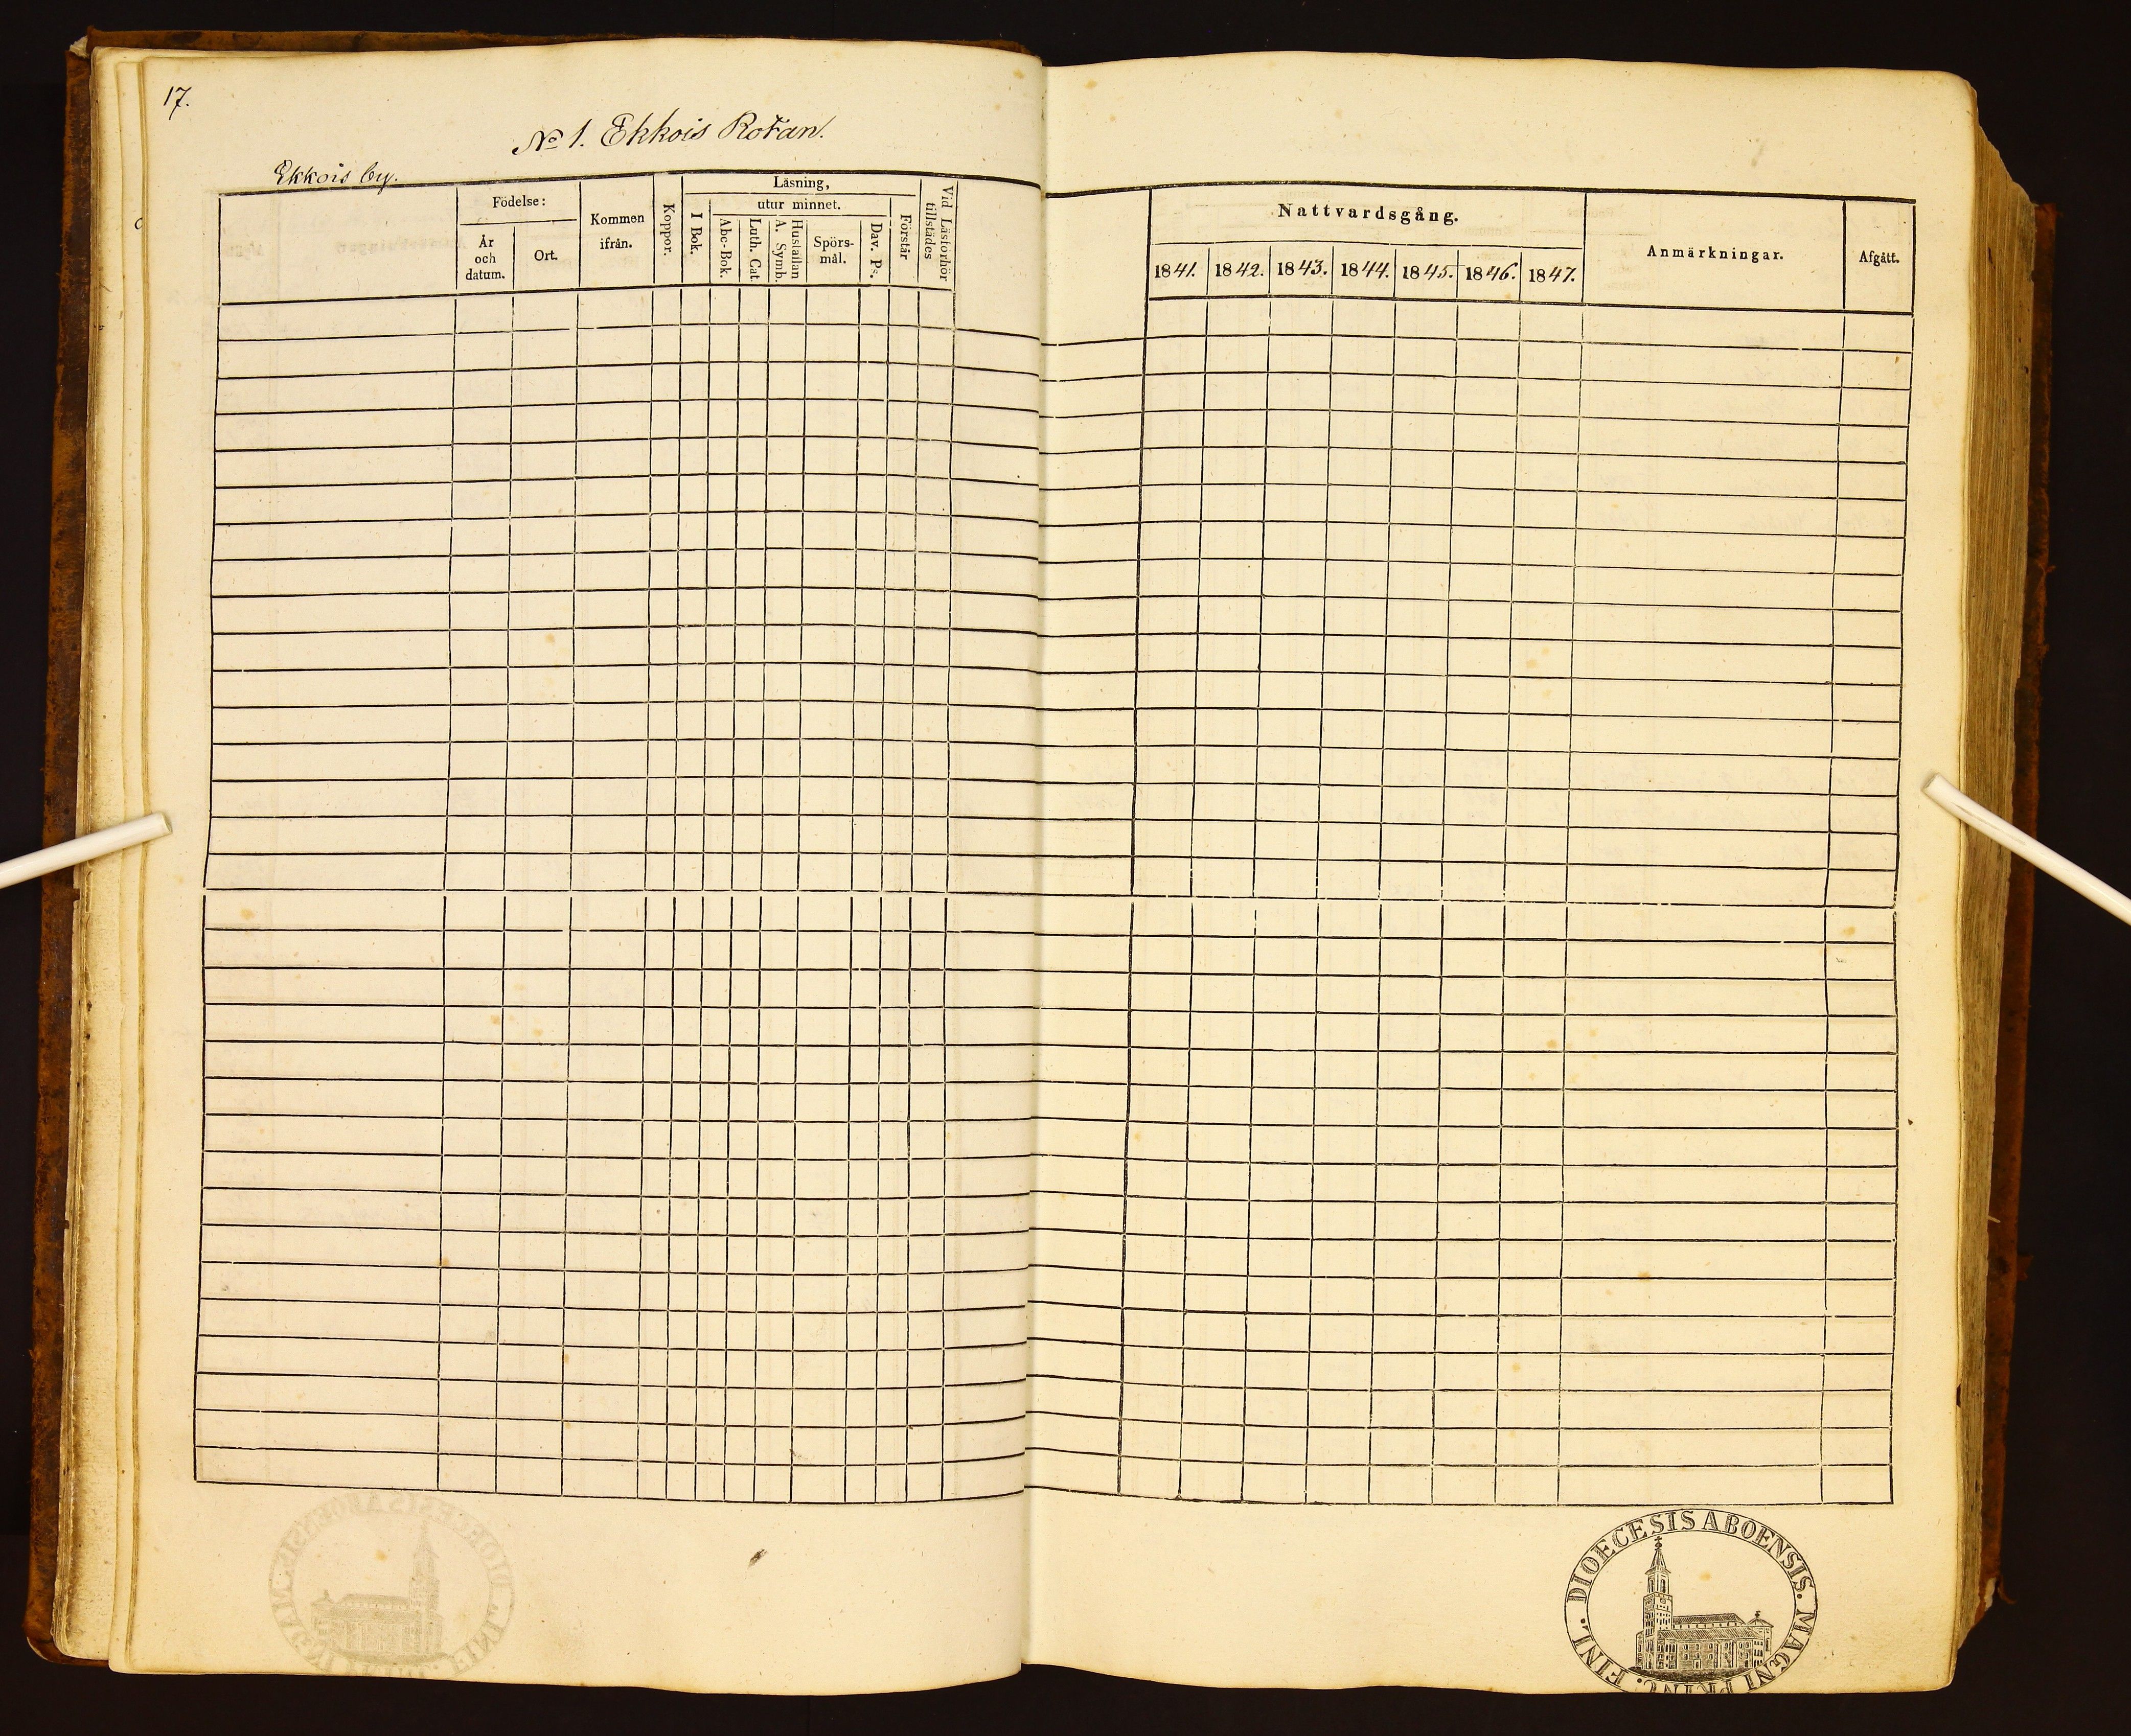 17.
No 1. Ekkois Rotan.
Ekkois by.
Födelse:
År och datum.
Ort.
Kommen ifrån.
Koppor.
Läsning,
I Bok.
utur minnet.
Abc-Bok.
Luth. Cat.
Hustaflan A. Symb.
Spörs-mål.
Dav. Ps.
Förstår
Vid Läsförhör tillstädes
Nattvardsgång.
1841. 1842. 1843. 1844. 1845. 1846. 1847.
Anmärkningar.
Afgått.
DIOECESIS ABOENSIS. MAGNI PRINC. FINL.